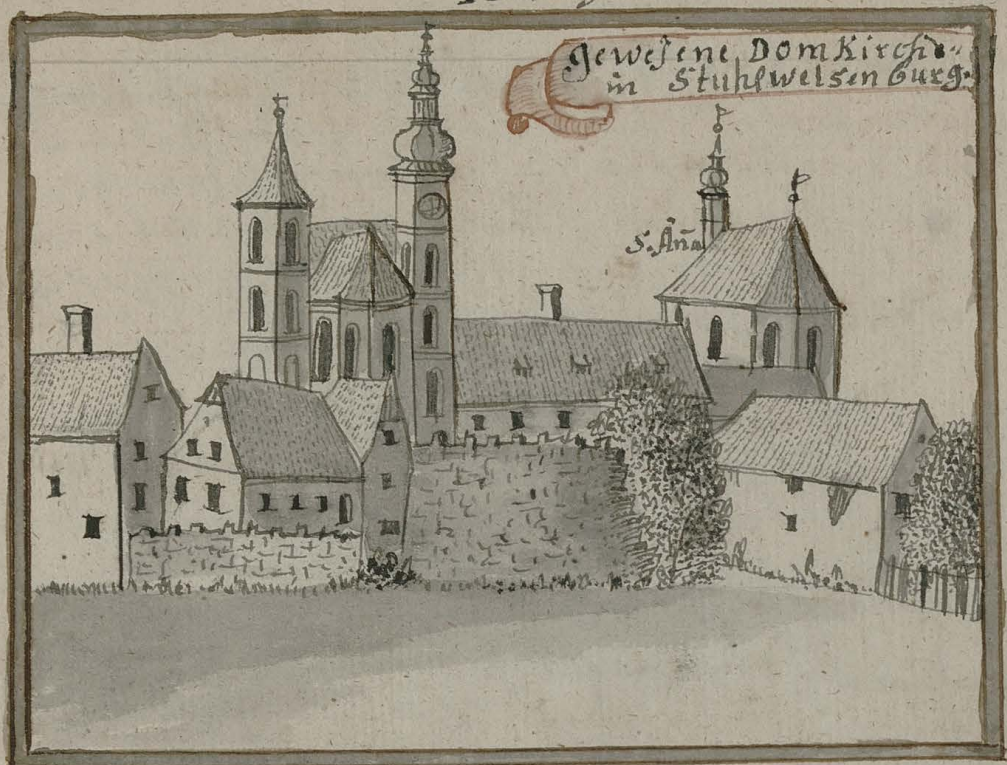 Gewesene Dom Kirche
in Stuhlweisenburg.
S. Añna